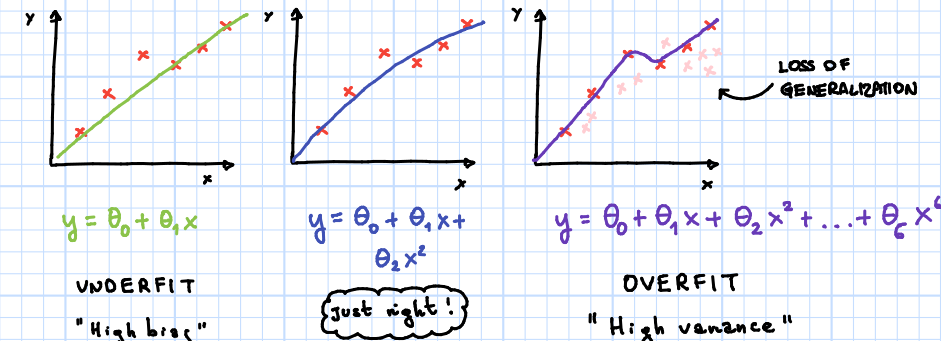 y
x
y = θ₀ + θ₁x
UNDERFIT
"High bias"
y
x
y = θ₀ + θ₁x +
θ₂x²
Just right!
y
x
LOSS OF
GENERALIZATION
y = θ₀ + θ₁x + θ₂x² + ... + θ₆x⁶
OVERFIT
"High variance"